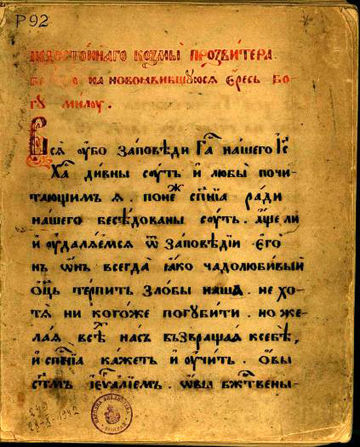 Р 92
недостоинаго козмы прозвитера
на новоꙗвившуюсѧ єресь бо
гꙋ милоу.
Всѧ ᲂубо заповѣди гⷭ҇а нашего і҆с
х҃а дивны соуть и любы почи
тающимъ ѧ. понеⷤ сп҃сніа ради
нашего бесѣдованы соуть. аще ли
и ᲂудалѧемсѧ ѿ заповѣдіи єго
нъ ѡнъ всегда ꙗко чадолюбивыи
ѡц҃ь терпить злобы наша. не хо
тѧ ни когоже погубити. но же
лаѧ всѣⷯ насъ възвращаѧ к себѣ,
и сп҃сніа кажеть и оучить. ѡвы
ст҃мъ іеѵⷢ҇аліемъ. ѡвы бж҃твены-